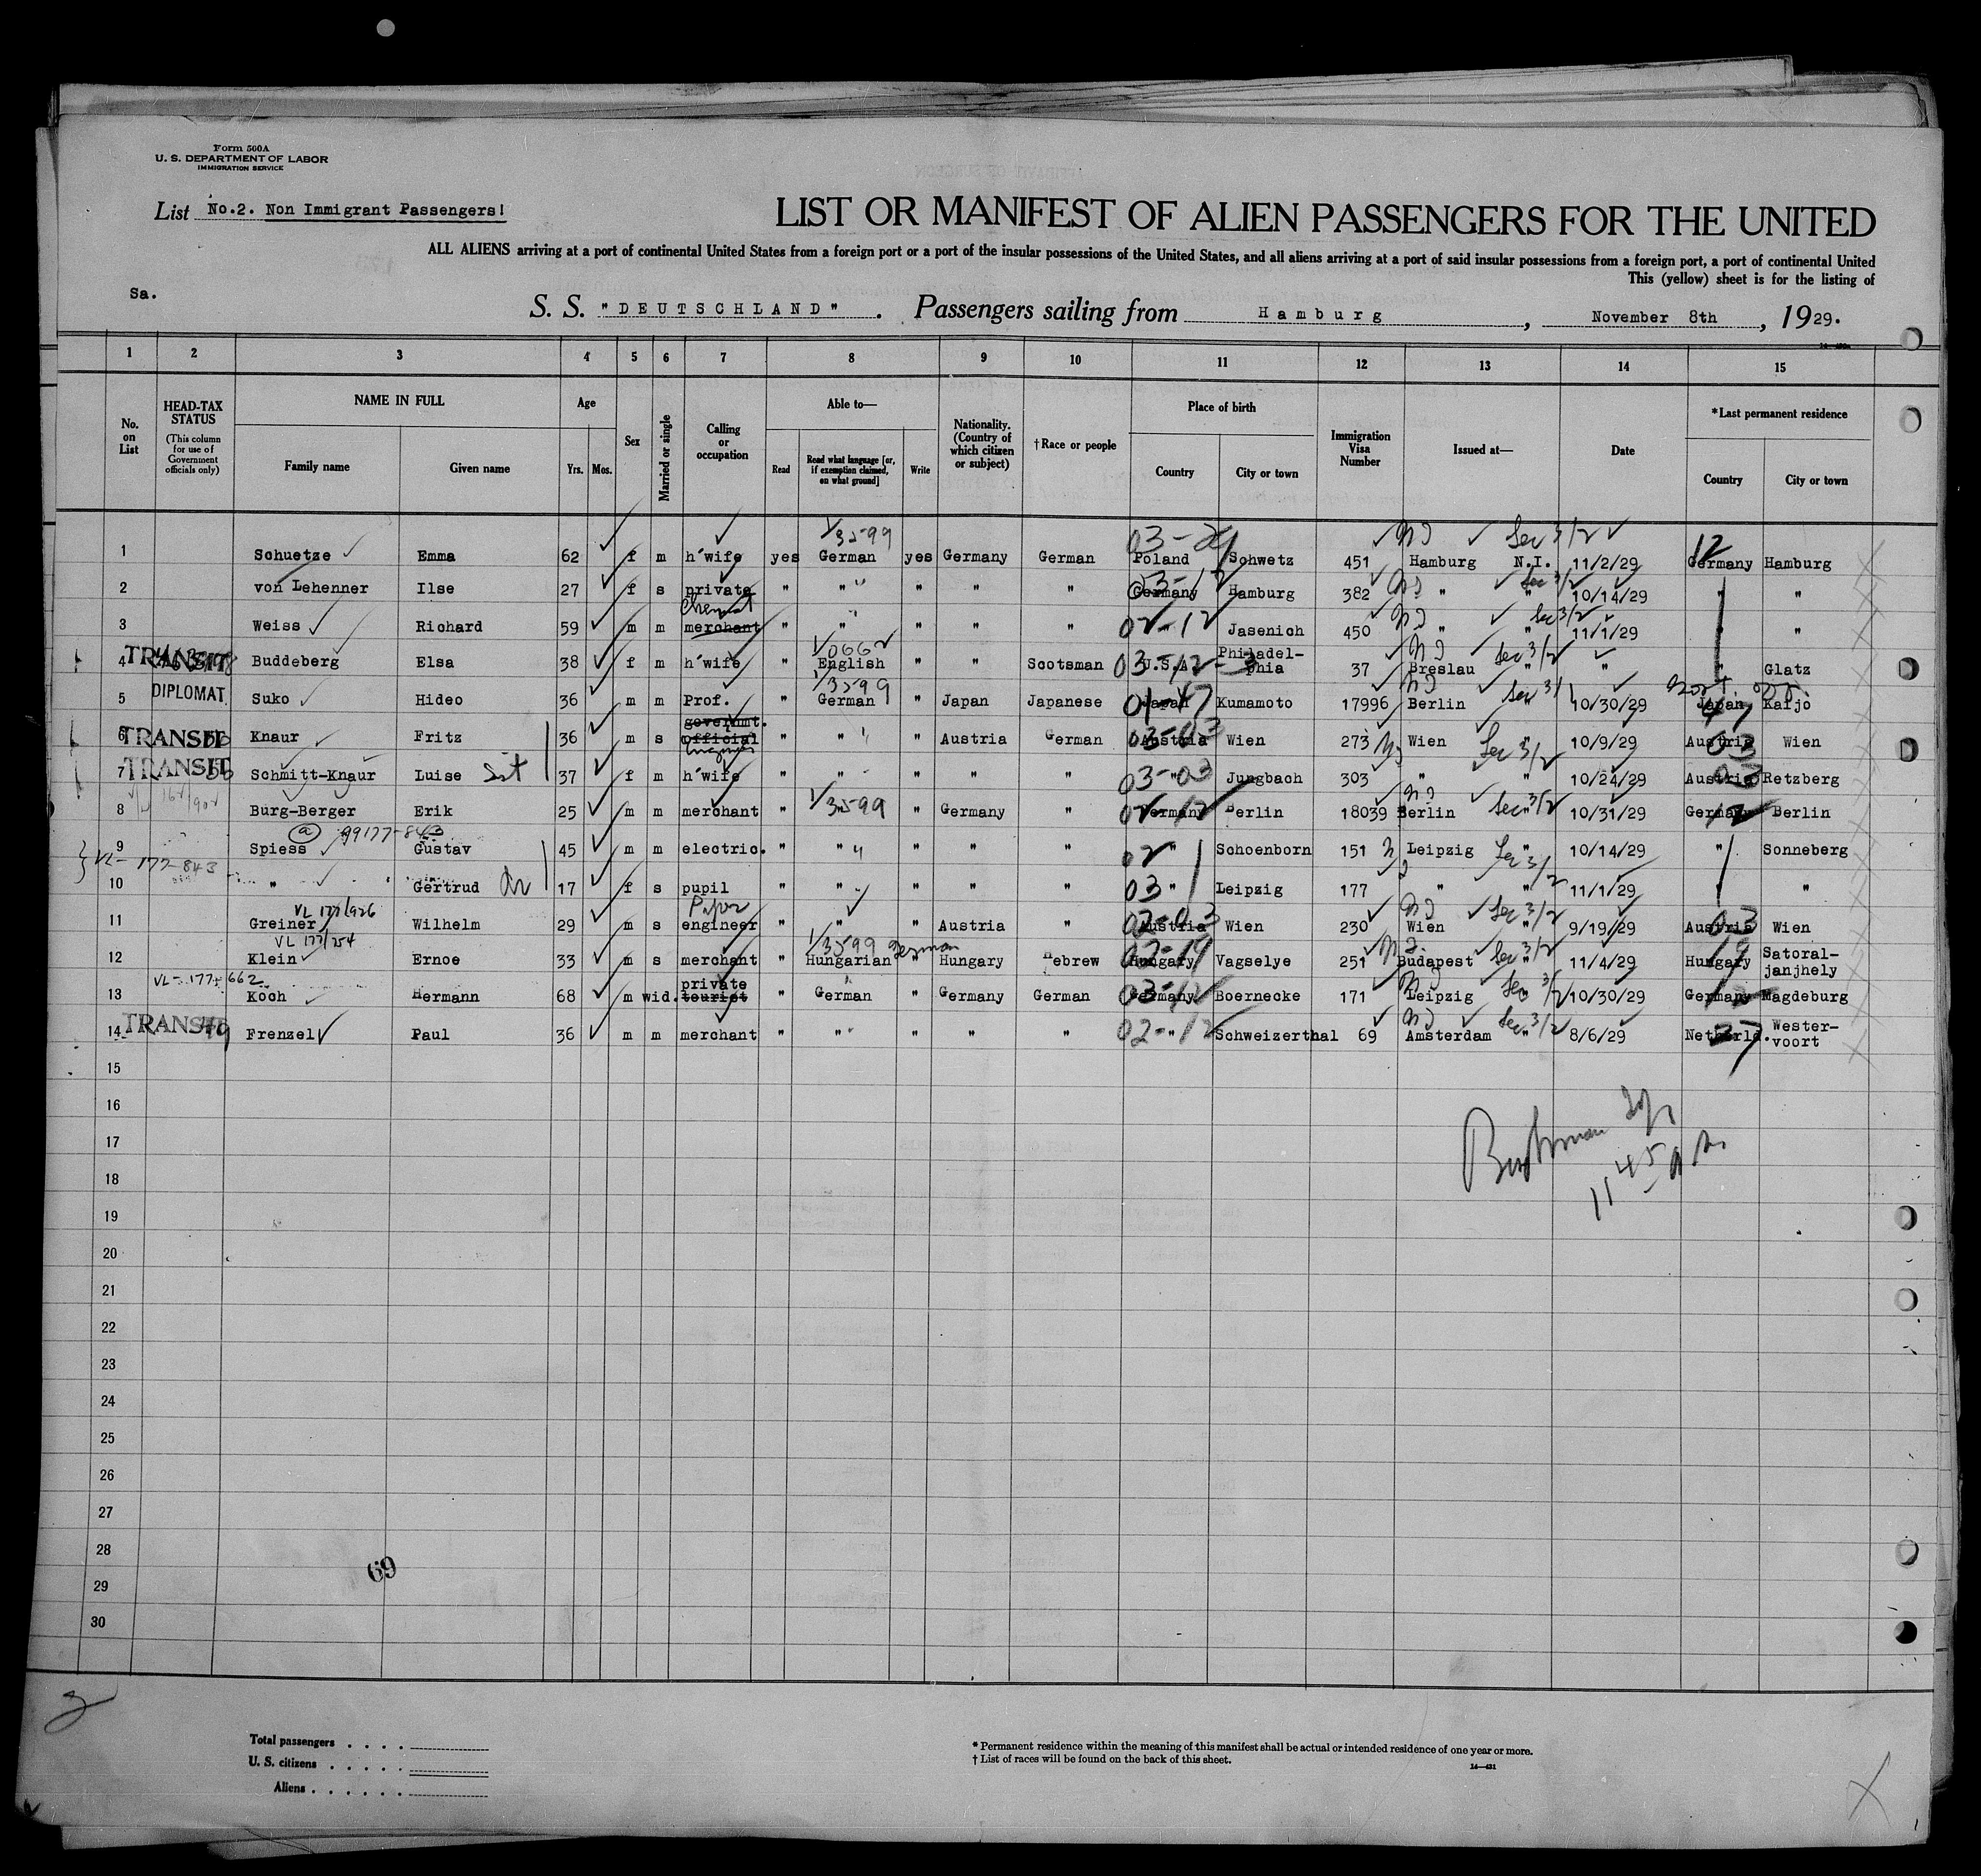 Form 500A
U. S. DEPARTMENT OF LABOR
IMMIGRATION SERVICE
List No.2. Non Immigrant Passengers!
LIST OR MANIFEST OF ALIEN PASSENGERS FOR THE UNITED
ALL ALIENS arriving at a port of continental United States from a foreign port or a port of the insular possessions of the United States, and all aliens arriving at a port of said insular possessions from a foreign port, a port of continental United
This (yellow) sheet is for the listing of
Sa.
S. S. "DEUTSCHLAND". Passengers sailing from Hamburg, November 8th, 1929.
1 2 3 4 5 6 7 8 9 10 11 12 13 14 15
No. on List
HEAD-TAX STATUS (This column for use of Government officials only)
NAME IN FULL Family name Given name
Age Yrs. Mos.
Sex
Married or single
Calling or occupation
Able to— Read Read what language [or, if exemption claimed, on what ground] Write
Nationality. (Country of which citizen or subject)
†Race or people
Place of birth Country City or town
Immigration Visa Number
Issued at—
Date
*Last permanent residence Country City or town
1 Schuetze Emma 62 f m h'wife yes 1/3599 German yes Germany German 03-29 Poland Schwetz 451 Hamburg N.I. Sec 3/2 11/2/29 12 Germany Hamburg
2 von Lehenner Ilse 27 f s private " " " " " 03-12 Germany Hamburg 382 " " Sec 3/2 10/14/29 " "
3 Weiss Richard 59 m m merchant Chemist " " " " " 02-12 Jasenich 450 " " Sec 3/2 11/1/29 " "
4 TRANSIT Buddeberg Elsa 38 f m h'wife " 1/0662 English " " Scotsman 03-12-3 U.S.A. Philadel-phia 37 Breslau " Sec 3/2 " " Glatz
5 DIPLOMAT Suko Hideo 36 m m Prof. " 1/3599 German " Japan Japanese 01-47 Japan Kumamoto 17996 Berlin " Sec 3/1 10/30/29 47 Japan Kaijo
6 TRANSIT Knaur Fritz 36 m s governmt. official Engineer " " " Austria German 03-03 Austria Wien 273 Wien " Sec 3/2 10/9/29 03 Austria Wien
7 TRANSIT Schmitt-Knaur Luise Sist 37 f m h'wife " " " " " 03-03 " Jungbach 303 " " 10/24/29 03 Austria Retzberg
8 Burg-Berger Erik 25 m m merchant " 1/3599 " Germany " 02-12 Germany Berlin 18039 Berlin " Sec 3/2 10/31/29 12 Germany Berlin
99177-843
9 Spiess Gustav 45 m m electric. " " " " " 02 " Schoenborn 151 Leipzig " Sec 3/2 10/14/29 " Sonneberg
VL-177-843
10 " Gertrud 17 f s pupil " " " " " 03 " Leipzig 177 " " 11/1/29 " "
VL 177/926
11 Greiner Wilhelm 29 m s Paper engineer " " " Austria " 02-03 Austria Wien 230 Wien " Sec 3/2 9/19/29 03 Austria Wien
VL 177/254
12 Klein Ernoe 33 m s merchant " 1/3599 German Hungarian " Hungary Hebrew 02-19 Hungary Vagselye 251 Budapest " Sec 3/2 11/4/29 19 Hungary Satoral-janjhely
VL-177-662
13 Koch Hermann 68 m wid. private tourist " German " Germany German 03-12 Germany Boernecke 171 Leipzig " Sec 3/2 10/30/29 12 Germany Magdeburg
14 TRANSIT Frenzel Paul 36 m m merchant " " " " " 02-12 " Schweizerthal 69 Amsterdam " Sec 3/2 8/6/29 27 Netherld. Wester-voort
15
16
17
18
19
20
21
22
23
24
25
26
27
28
29
30
1145 am
69
2
Total passengers
U. S. citizens
Aliens
* Permanent residence within the meaning of this manifest shall be actual or intended residence of one year or more.
† List of races will be found on the back of this sheet.
14—431